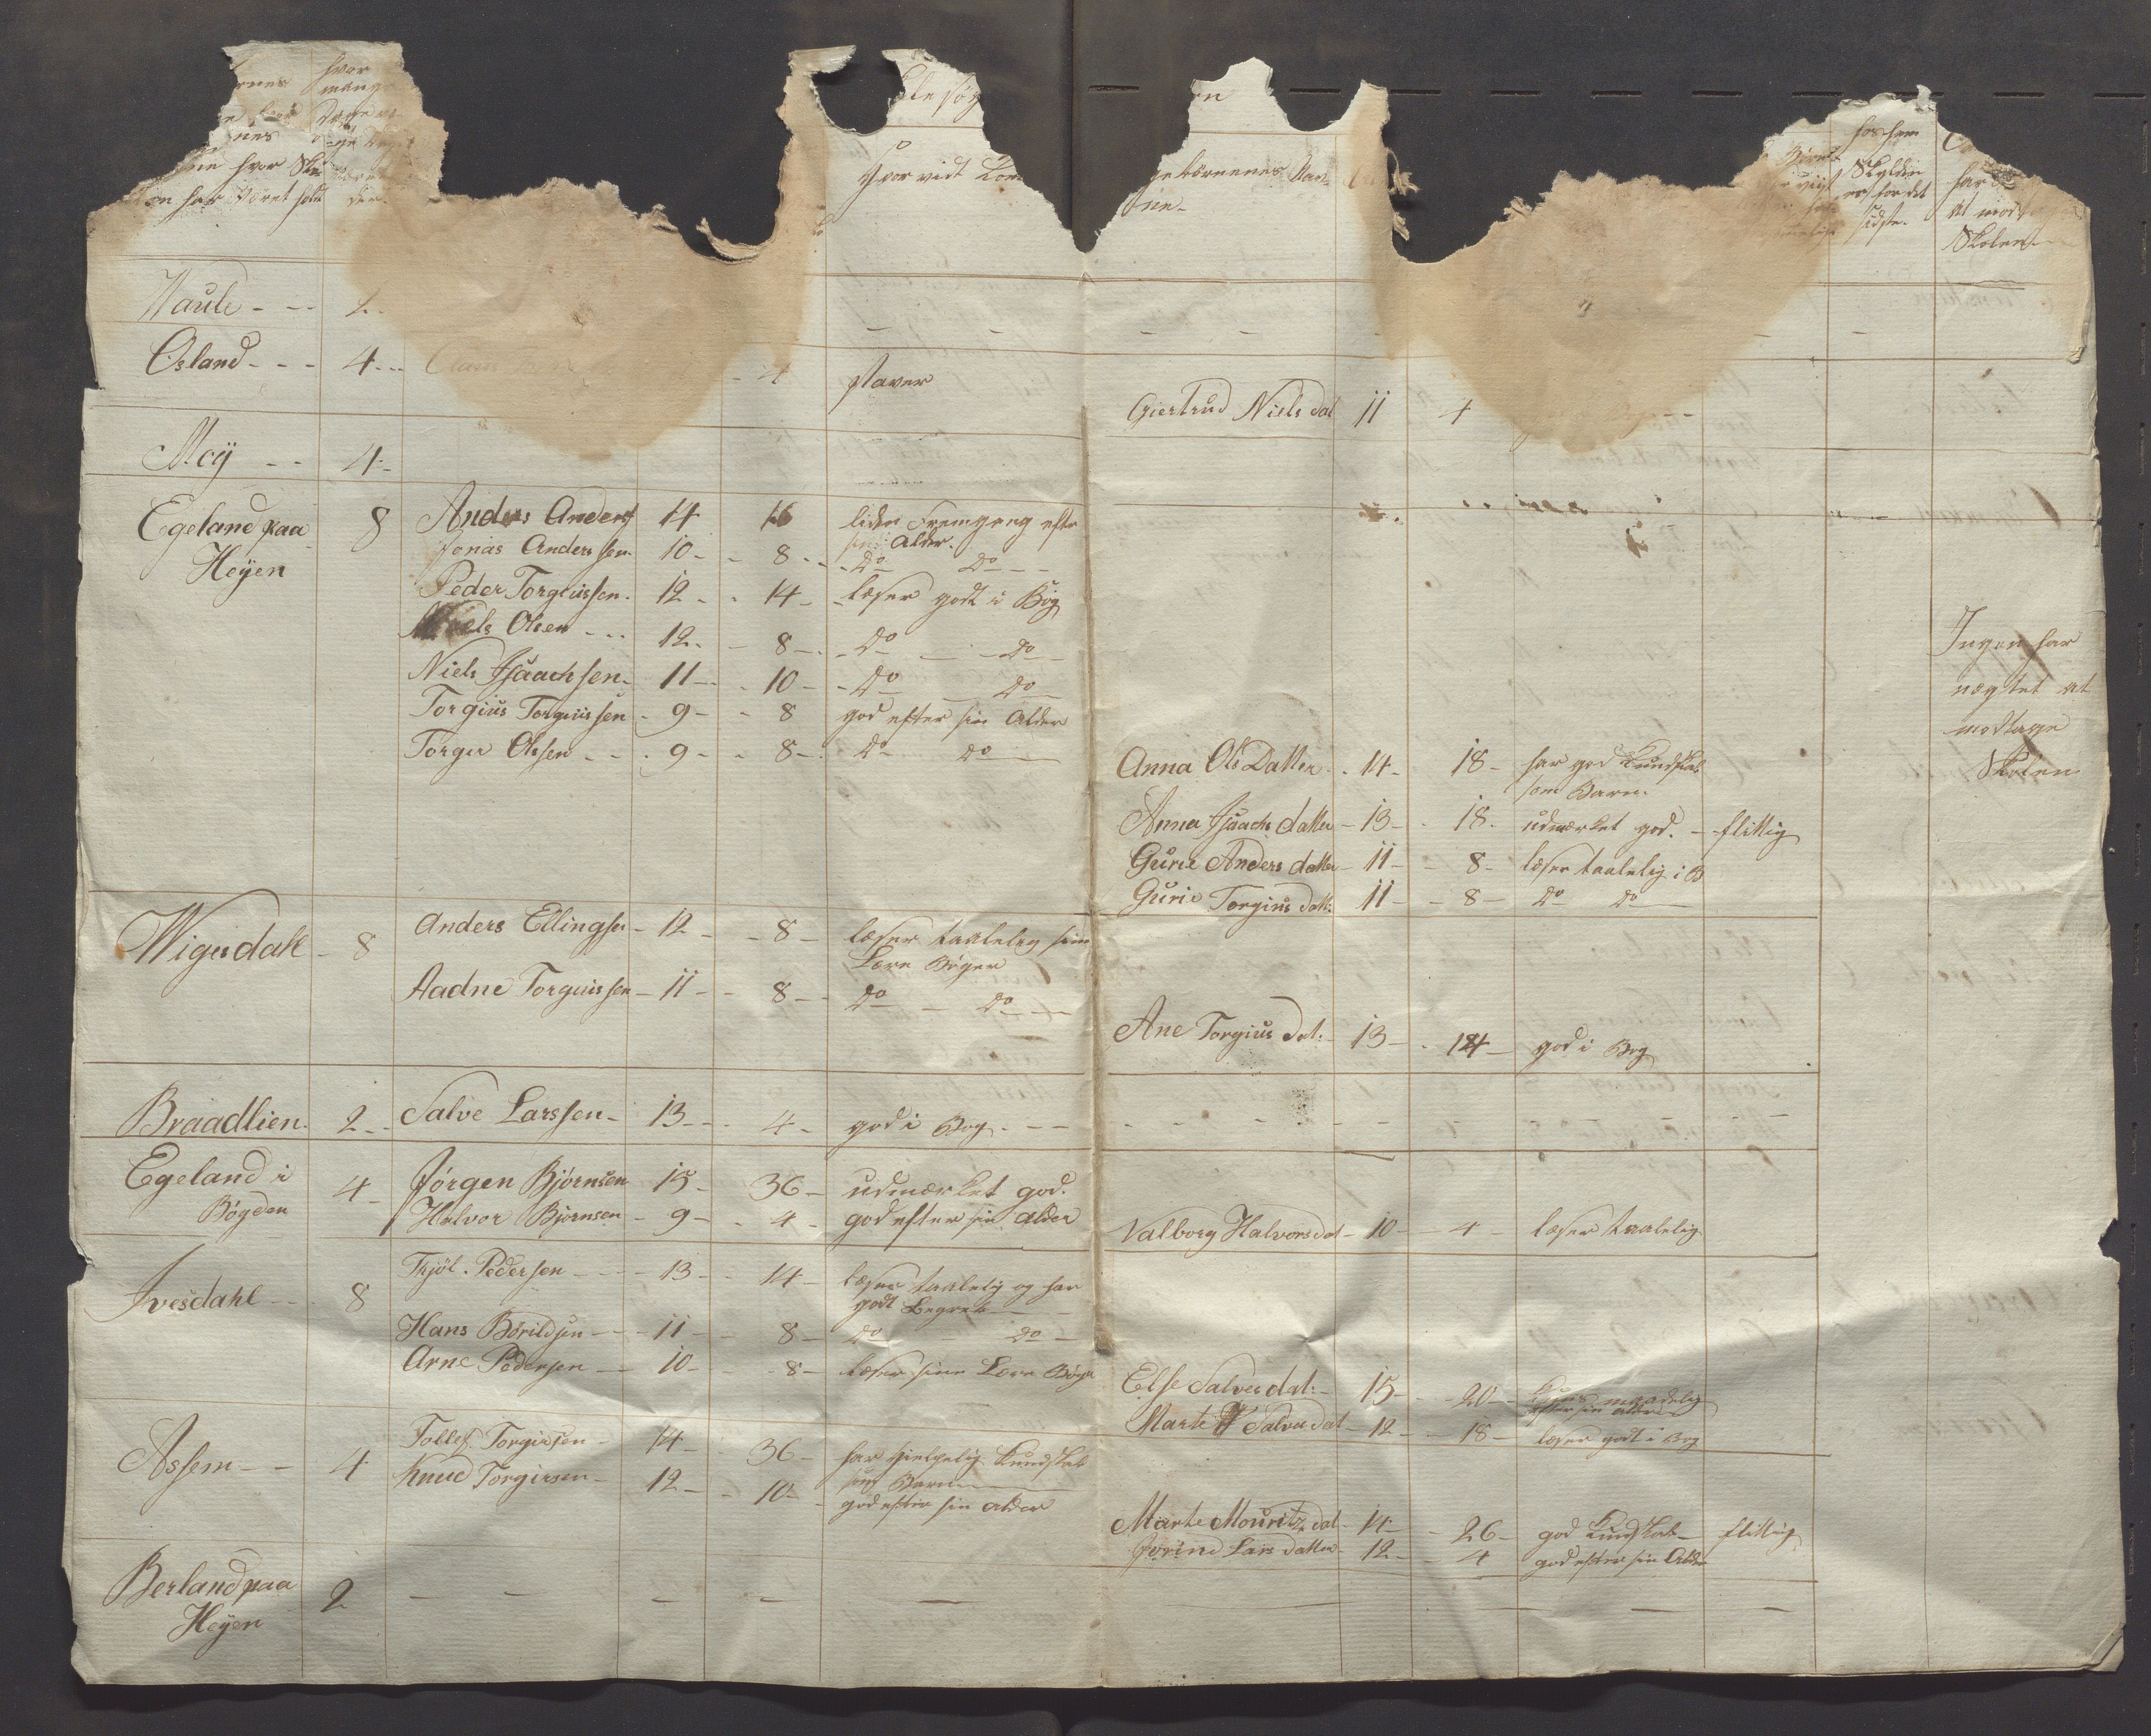 hvor
rnes mange
nes
hvor Sko
har været holdt der
Hvor vidt
børnenes Nav-
ne-
Skylden
er for det
sidste-
har
at mod
Skolen
Haule - - -
Osland - - - 4 - - - 4 staver Giertrud Niels dat 11 4
Moÿ - - 4 -
Egeland paa 8 Anders Anders 14 16 liden Fremgang efter
Heÿen sin Alder.
Jonas Andersen - 10 - - 8 - - Do Do - -
Peder Torgiussen - 12 - - 14 - læser godt i Bog
Niels Olsen - - - 12 - - 8 - - Do - Do
Niels Isaachsen - 11 - - 10 - - Do Do
Torgius Torgiussen - 9 - - 8 god efter sin Alder
Torger Olssen - - - 9 - - 8 - Do Do
Ingen har
nægtet at
modtage
Skolen
Anna Ols Datter - 14 - 18 - har god Kundskab
som Barn.
Anna Isaachs datter - 13 - - 18 - udmærket god. - flittig
Gurie Anders datter - 11 - - 8 - læser taalelig i B
Gurie Torgius datt: 11 - - 8 - Do Do
Wigesdahl - 8 Anders Ellingsen - 12 - - 8 - læser taalelig sine
Lære Bøger
Aadne Torguissen - 11 - - 8 - - Do - Do - -
Ane Torgius dat: - 13 - - 14 - god i Bog
Braadlien - 2 - - Salve Larssen - 13 - - 4 - god i Bog - - -
Egeland i 4 - Jørgen Bjørnsen 15 - 36 - udmærket god.
Bøÿden Halvor Bjørnsen - 9 - - 4 - god efter sin Alder
Valborg Halvorsdat - 10 - - 4 - læser taalelig
Ivesdahl - - 8 Trjöl. Pedersen - - - 13 - - 14 - læser taalelig og har
godt Begreb
Hans Børildsen - - 11 - - 8 - Do Do -
Arne Pedersen - - 10 - - 8 - læser sine Lære Bøger
Else Salves dat: - 15 - - 20 -
efter sin Alder
Marte Salve dat - 12 - - 18 - læser godt i Bog
Assem - - 4 Tollef Torgiersen - 14 - - 36 - har Kundskab
som Barn
Knud Torgiersen - 12 - - 10 - god efter sin Alder
Marte Mouritz dat - 14 - - 26 - god Kundskab - flittig
Jorine Lars datter - 12 - - 4 god efter sin Alder
Berland paa 2 - - - - -
Heÿen